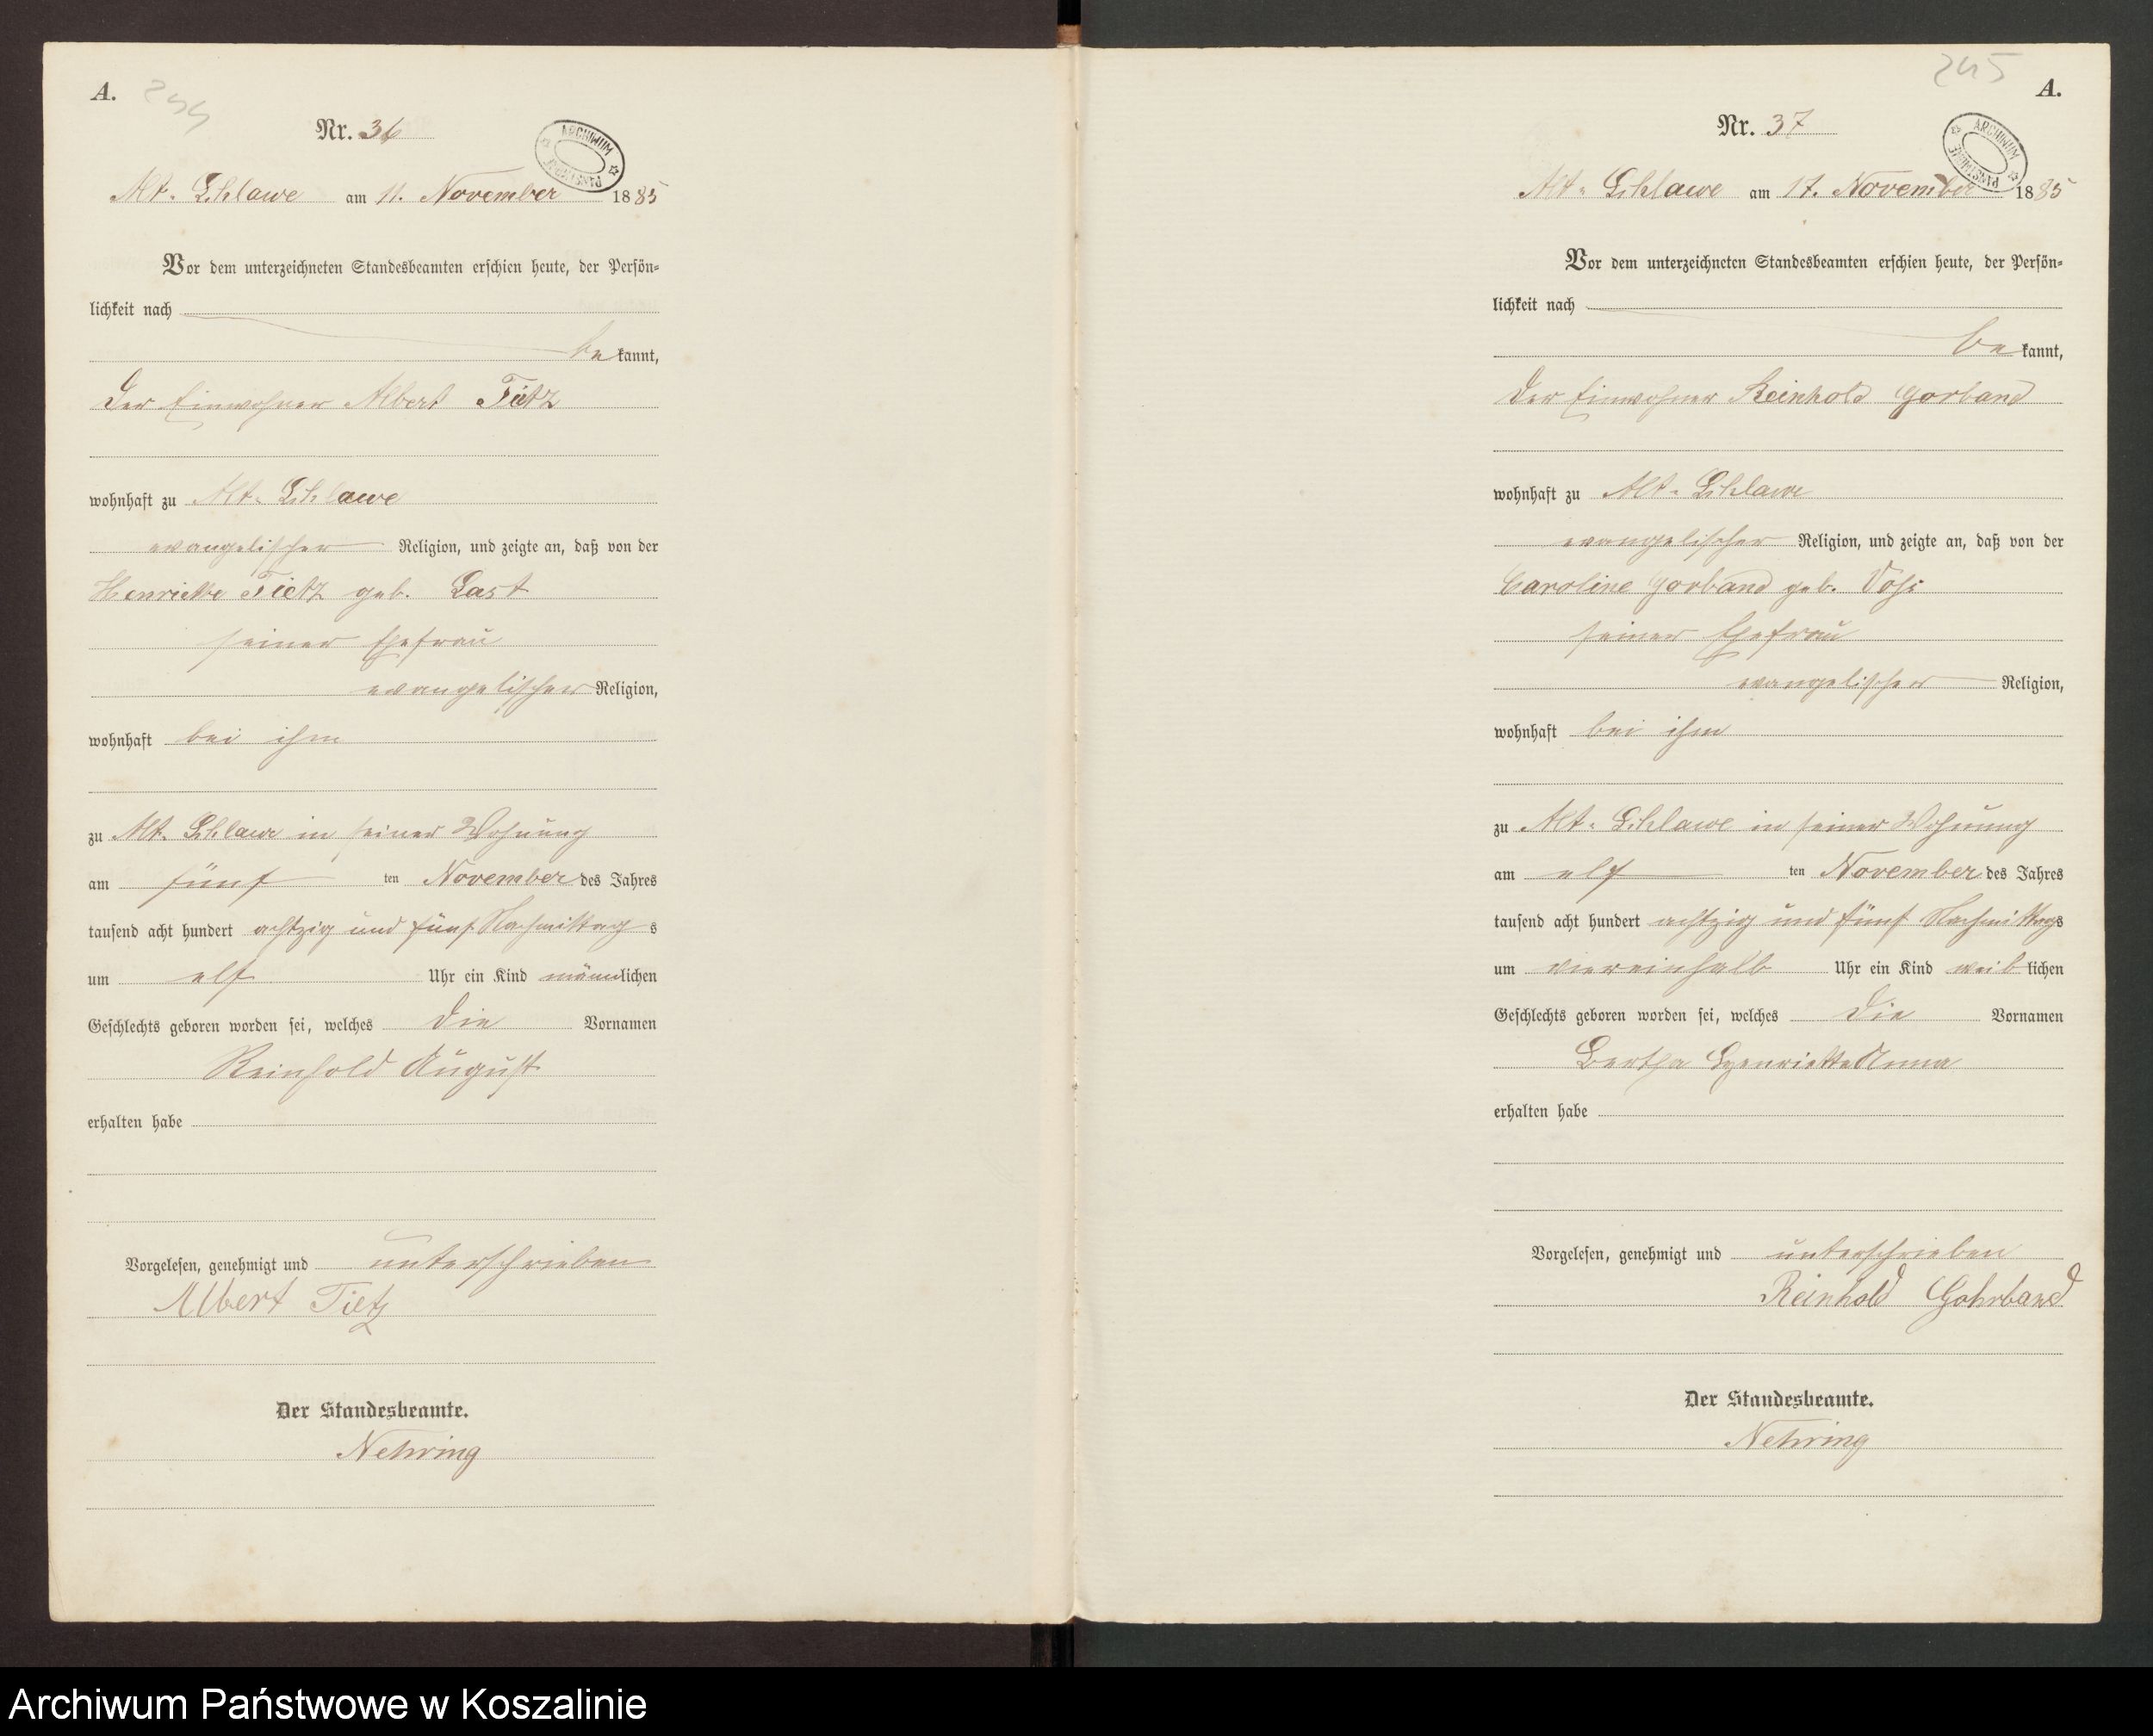 A. 244
Nr. 36
ARCHIWUM PAŃSTWOWE
Alt-Schlawe am 11. November 1885
Vor dem unterzeichneten Standesbeamten erschien heute, der Persön-
lichkeit nach
bekannt,
der Einwohner Albert Tietz
wohnhaft zu Alt-Schlawe
evangelischer Religion, und zeigte an, daß von der
Henriette Tietz geb. Last
seiner Ehefrau
evangelischer Religion,
wohnhaft bei ihm
zu Alt-Schlawe in seiner Wohnung
am fünften November des Jahres
tausend acht hundert achtzig und fünf Nachmittags
um elf Uhr ein Kind männlichen
Geschlechts geboren worden sei, welches die Vornamen
Reinhold August
erhalten habe
Vorgelesen, genehmigt und unterschrieben
Albert Tietz
Der Standesbeamte.
Nehring
245 A.
Nr. 37
ARCHIWUM PAŃSTWOWE
Alt-Schlawe am 17. November 1885
Vor dem unterzeichneten Standesbeamten erschien heute, der Persön-
lichkeit nach
bekannt,
der Einwohner Reinhold Gorband
wohnhaft zu Alt-Schlawe
evangelischer Religion, und zeigte an, daß von der
Caroline Gorband geb. Voss
seiner Ehefrau
evangelischer Religion,
wohnhaft bei ihm
zu Alt-Schlawe in seiner Wohnung
am elften November des Jahres
tausend acht hundert achtzig und fünf Nachmittags
um viereinhalb Uhr ein Kind weiblichen
Geschlechts geboren worden sei, welches die Vornamen
Bertha Henriette Anna
erhalten habe
Vorgelesen, genehmigt und unterschrieben
Reinhold Gohrband
Der Standesbeamte.
Nehring
Archiwum Państwowe w Koszalinie